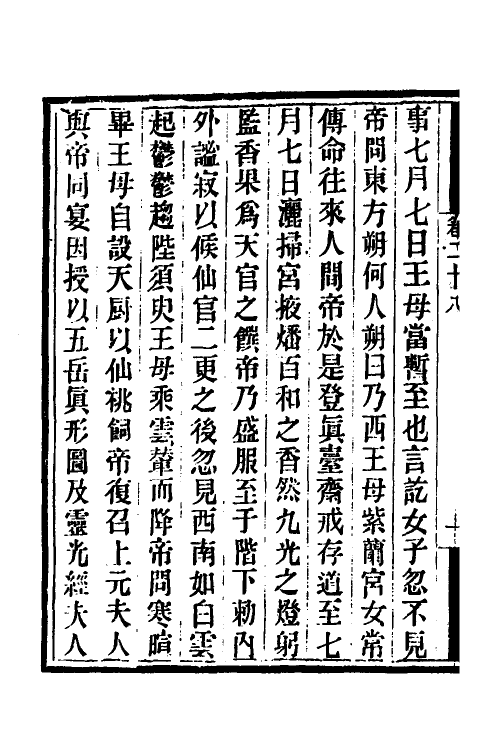 卷二十八
十
事七月七日王母當暫至也言訖女子忽不見
帝問東方朔何人朔曰乃西王母紫蘭宮女常
傳命往來人間帝於是登真臺齋戒存道至七
月七日灑掃宮掖燔百和之香然九光之燈躬
監香果為天官之饌帝乃盛服至于階下勅內
外謐寂以候仙官二更之後忽見西南如白雲
起鬱鬱趨陛須臾王母乘雲輦而降帝問寒暄
畢王母自設天厨以仙桃飼帝復召上元夫人
與帝同宴因授以五岳真形圖及靈光經夫人